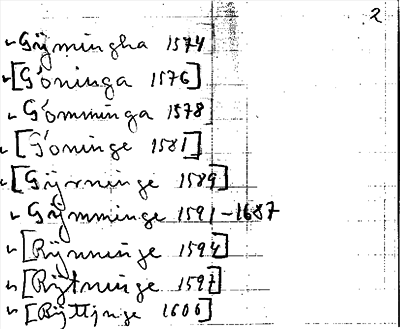 2
Gÿmingha 1574
[Góninga 1576]
Gómminga 1578
[Góninge 1581]
[Gÿrninge 1589]
Gÿmminge 1591-1687
[Rÿnninge 1594]
[Rÿtninge 1597]
[Rÿttjnge 1606]